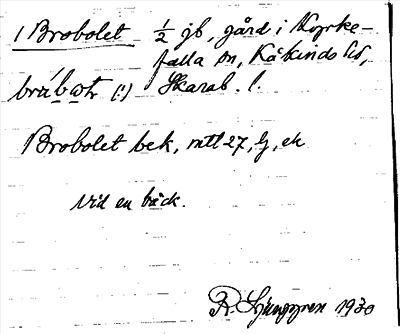 1 Brobolet ½ jb, gård i Kyrke-
falla sn, Kåkinds hd,
Skarab. l.
Brobolet bek, mtl 27, Lj, ek
Vid en bäck.
R. Ljunggren 1930